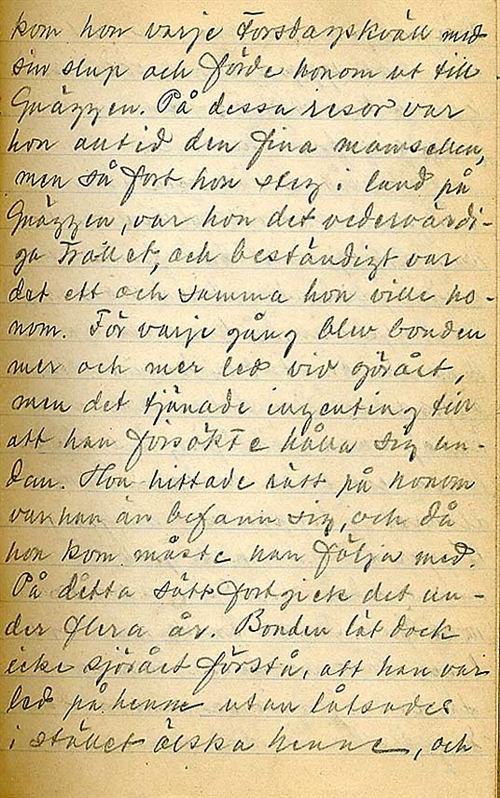 kom hon varje Torsdagskväll med
sin slup och förde honom ut till
Gnäggen. På dessa resor var
hon alltid den fina mamsellen,
men så fort hon steg i land på
Gnäggen, var hon det vedervärdi-
ga Trollet, och beständigt var
det ett och samma hon ville ho-
nom. För varje gång blev bonden
mer och mer led vid görået,
men det tjänade ingenting till
att han försökte hålla sig un-
dan. Hon hittade rätt på honom
var han än befann sig, och då
hon kom måste han följa med.
På detta sätt fortgick det un-
der flera år. Bonden lät dock
icke sjörået förstå, att han var
led på henne utan låtsades
i stället älska henne, och